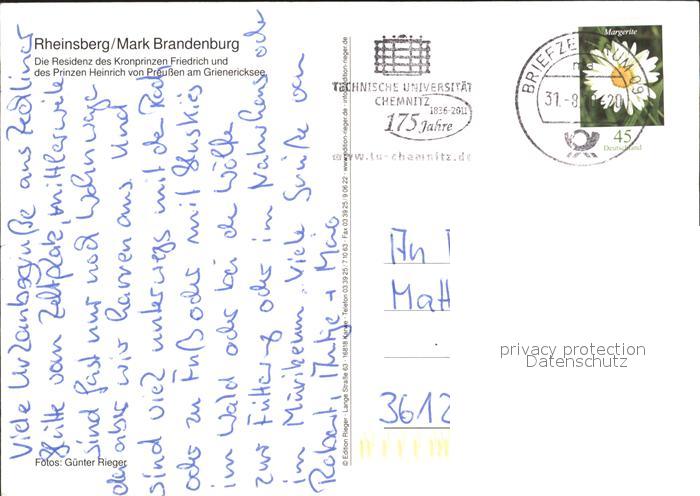 Rheinsberg/Mark Brandenburg
Die Residenz des Kronprinzen Friedrich und
des Prinzen Heinrich von Preußen am Grienericksee
Viele Urlaubsgrüße aus Zechliner
Hütte vom Zeltplatz, mittlerweile
sind fast nur noch Wohnwage
da aber wir harren aus und
sind viel unterwegs mit de Rad
oder zu Fuß oder mit Huskies
im Wald oder bei de Wölfe
zur Fütterung oder im Naturhaus oder
im Müritzeum. Viele Grüße von
Robert, Antje + Maio
Fotos: Günter Rieger
© Edition Rieger · Lange Straße 63 · 16818 Karwe · Telefon 03 39 25/7 10 63 · Fax 03 39 25/9 06 22 · www.edition-rieger.de · info@edition-rieger.de
TECHNISCHE UNIVERSITÄT
CHEMNITZ
1836-2011
175 Jahre
www.tu-chemnitz.de
BRIEFZENTRUM 09
31.-8.
Margerite
45
Deutschland
An
Matt
3612
privacy protection
Datenschutz